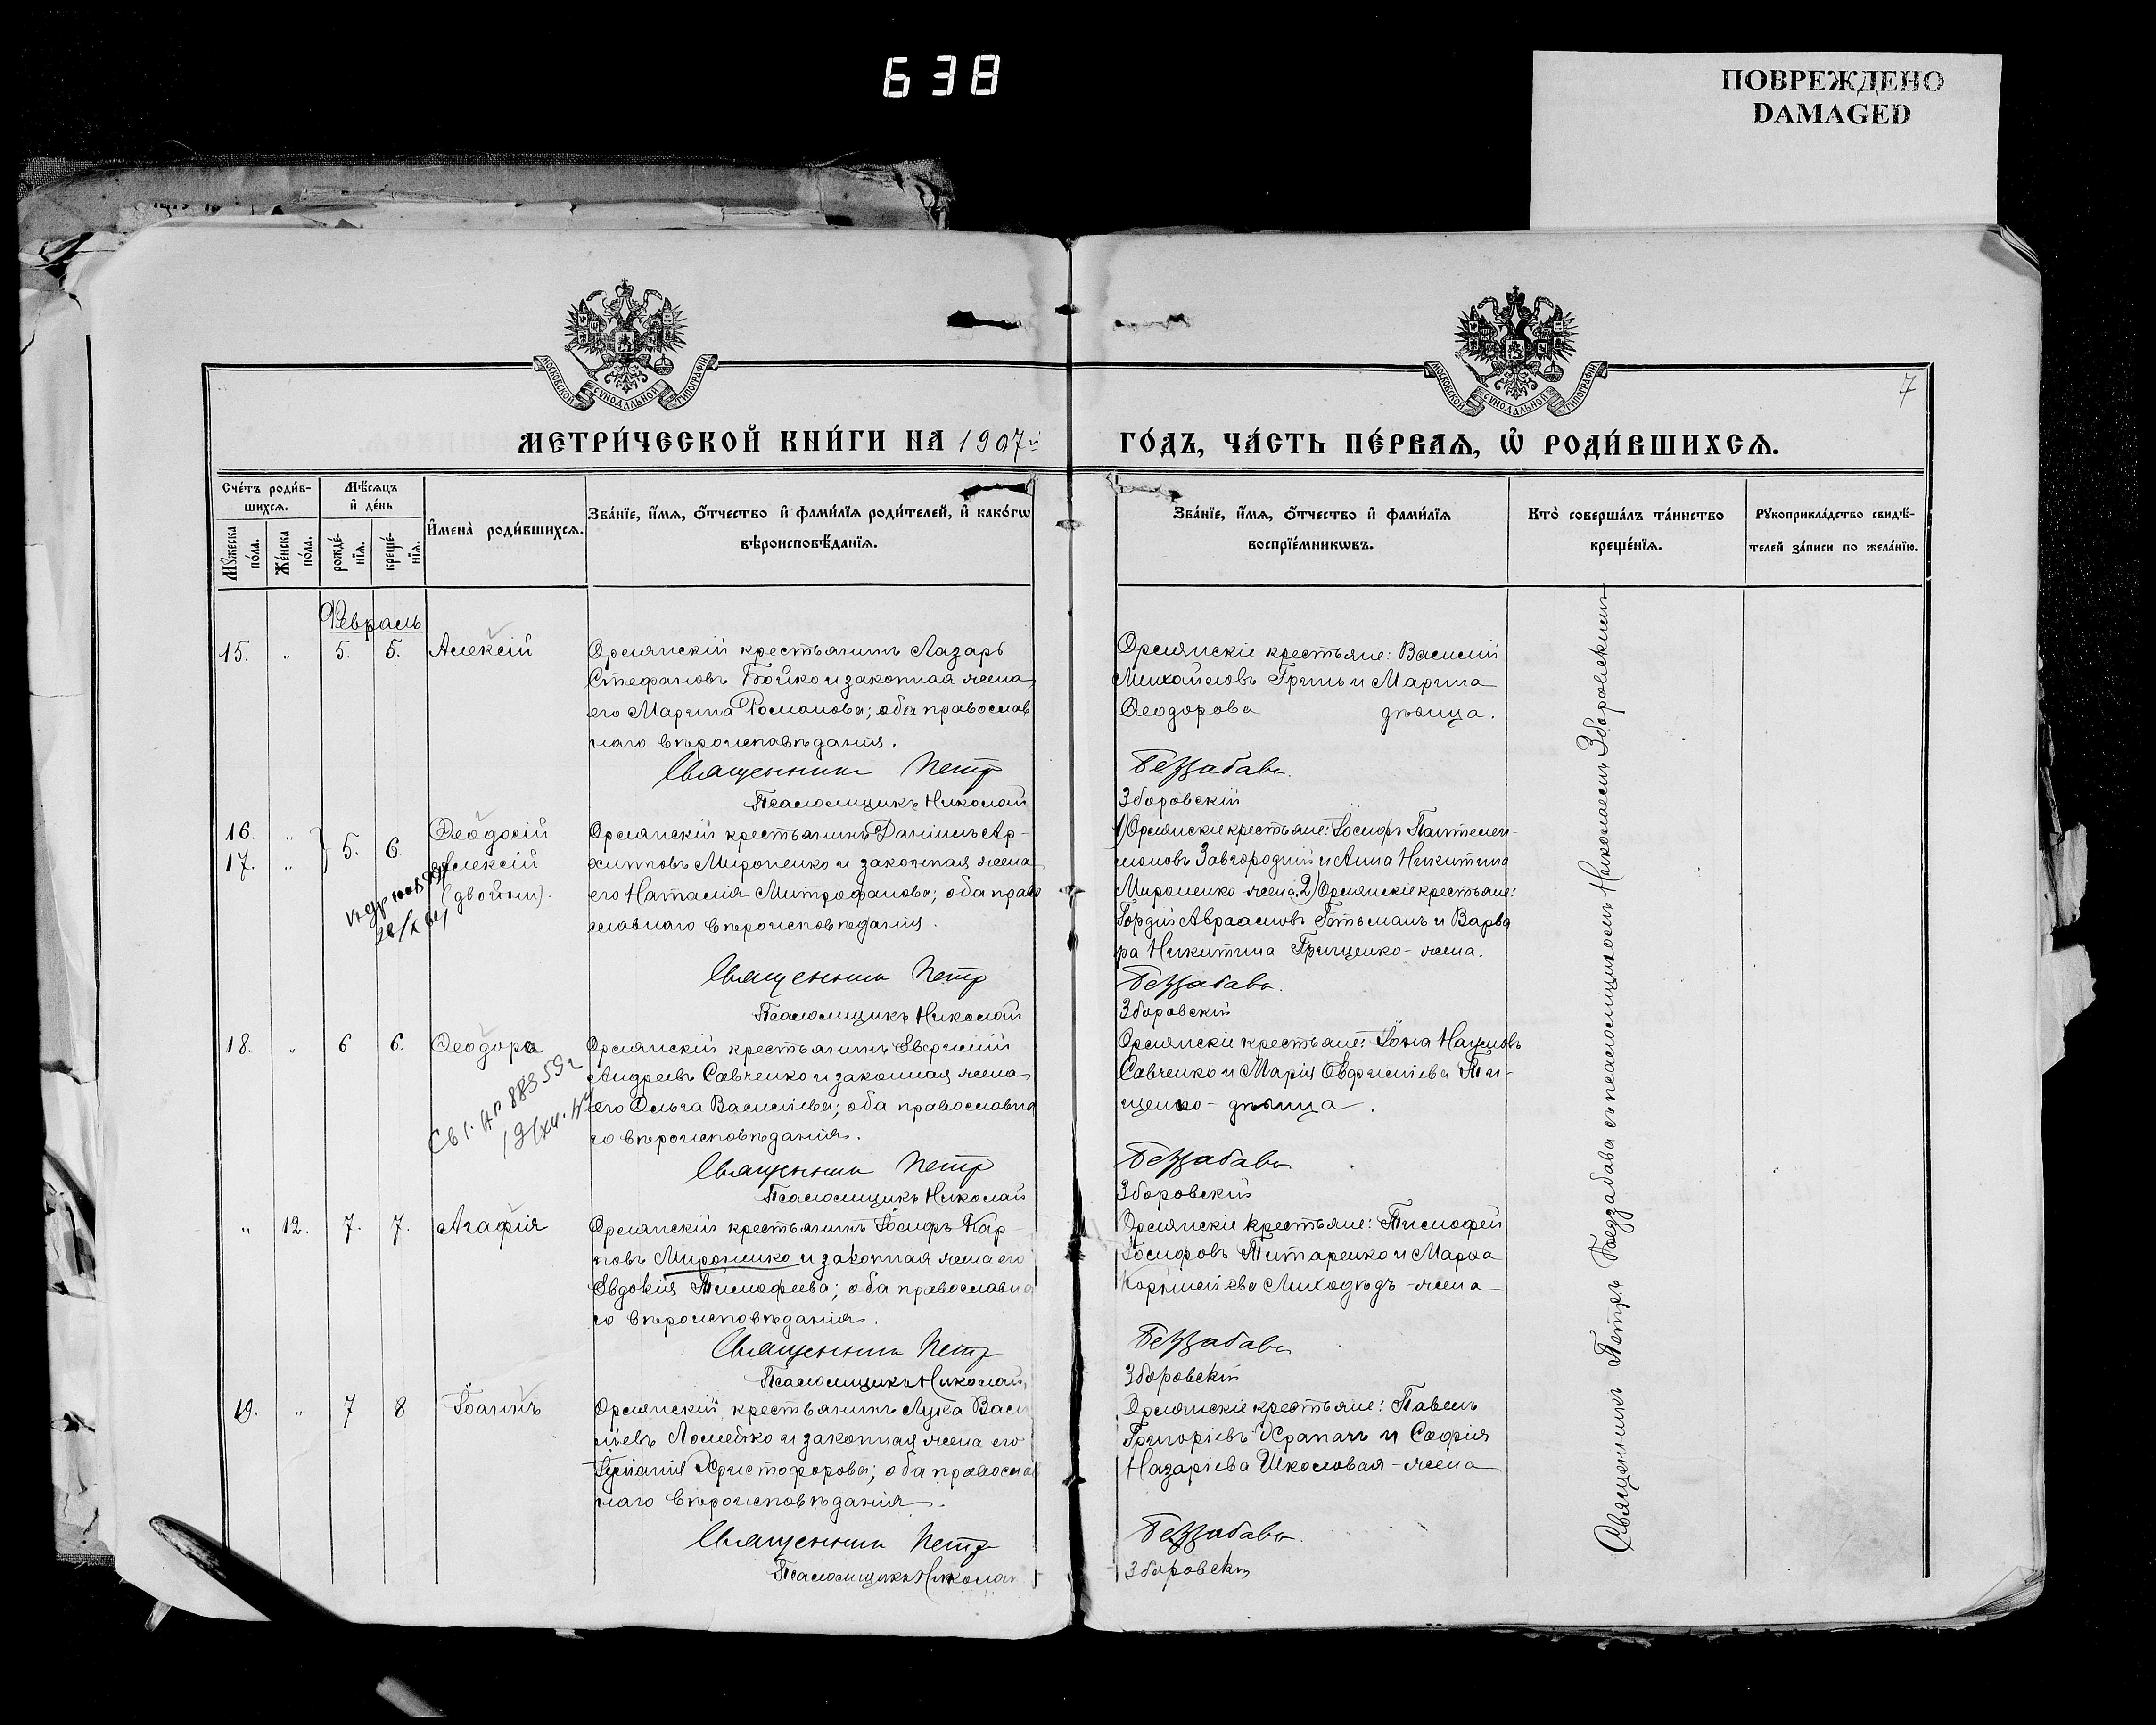 638
ПОВРЕЖДЕНО
DAMAGED
МОСКОВСКОЙ СѴНОДАЛЬНОЙ ТИПОГРАФІИ
МОСКОВСКОЙ СѴНОДАЛЬНОЙ ТИПОГРАФІИ
7
МЕТРИ́ЧЕСКОЙ КНИ́ГИ НА 1907й
ГО́ДЪ, ЧА́СТЬ ПЕ́РВАѦ, Ѡ҆ РОДИ́ВШИХСѦ.
Сче́тъ роди́в-
шихсѧ.
Мꙋжеска по́ла.
Же́нска по́ла.
Мѣ́сѧцъ
и҆ де́нь
рожде́-
нїѧ.
креще́-
нїѧ.
И҆мена̀ роди́вшихсѧ.
Зва́нїе, и҆́мѧ, ѻ҆́тчество и҆ фами́лїѧ роди́телей, и҆ како́гѡ
вѣроисповѣ́данїѧ.
Зва́нїе, и҆́мѧ, ѻ҆́тчество и҆ фами́лїѧ
воспрїе́мникѡвъ.
Кто̀ соверша́лъ та́инство
креще́нїѧ.
Рꙋкоприкла́дство свидѣ́-
телей за́писи по жела́нїю.
Февраль
15. " 5. 5. Алексій
Орлянскій крестьянинъ Лазарь
Стефановъ Бойко и законная жена
его Марина Романова; оба православ
наго вѣроисповѣданія.
Священникъ Петр
Псаломщикъ Николай
Орлянскіе крестьяне: Василий
Михайловъ Гринь и Марина
Ѳеодорова дѣвица.
Беззабава
Зборовскій
16. " 5. 6. Ѳеодосій
17. " Алексій
(двойни).
Орлянскій крестьянинъ Даніилъ Ар-
хиповъ Мироненко и законная жена
его Наталія Митрофанова; оба право
славнаго вѣроисповѣданія.
Священникъ Петр
Псаломщикъ Николай
1) Орлянскіе крестьяне: Іосифъ Пантелеи-
моновъ Завгородній и Анна Никитина
Мироненко жена. 2) Орлянскіе крестьяне:
Гордій Авраамовъ Гетьманъ и Варва
ра Никитина Грищенко - жена.
Беззабава.
Зборовскій
18. " 6 6. Ѳеодора
Орлянскій крестьянинъ Евгеній
Андреевъ Савченко и законная жена
его Ольга Василіева; оба православна
го вѣроисповѣданія.
Священникъ Петр
Псаломщикъ Николай
Орлянскіе крестьяне: Іона Наумовъ
Савченко и Марія Евфиміева Ти-
щенко - дѣвица.
Беззабава
Зборовскій
" 12. 7. 7. Агафія
Орлянскій крестьянинъ Іосифъ Кар
повъ Мироненко и законная жена его
Евдокія Тимофеева; оба православна
го вѣроисповѣданія.
Священникъ Петр
Псаломщикъ Николай
Орлянскіе крестьяне: Тимофей
Іосифовъ Титаренко и Марѳа
Корниліева Лиходѣдъ - жена
Беззабава
Зборовскій
19. " 7 8 Іоаннъ
Орлянскій крестьянинъ Лука Васи
ліевъ Ломейко и законная жена его
Іуліанія Христофорова; оба православ
наго вѣроисповѣданія.
Священникъ Петр
Псаломщикъ Николай
Орлянскіе крестьяне: Павелъ
Григоріевъ Храпачъ и Софія
Назаріева Школовая - жена
Беззабава.
Зборовскій
Священникъ Петръ Беззабава съ псаломщикомъ Николаемъ Зборовскимъ